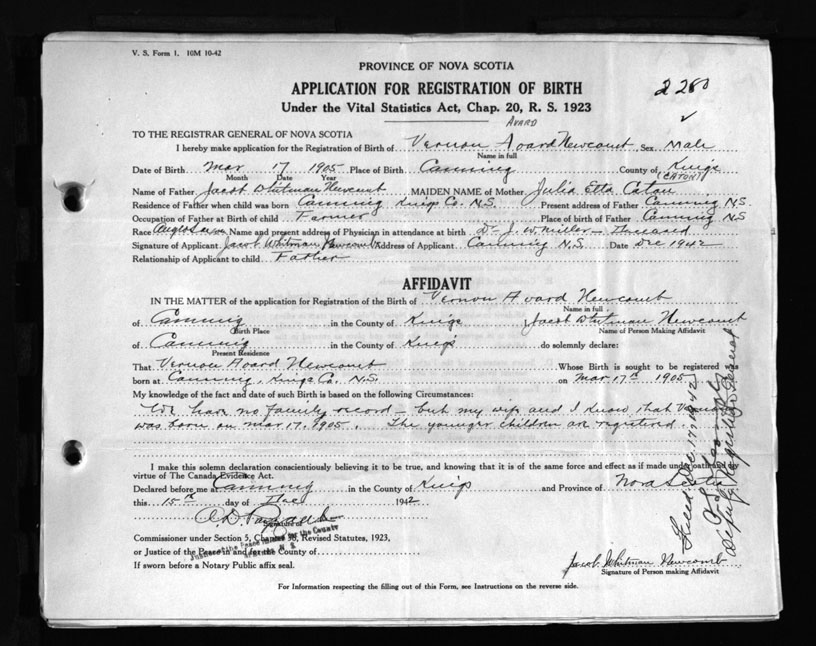 V. S. Form 1. 10M 10-42
PROVINCE OF NOVA SCOTIA
APPLICATION FOR REGISTRATION OF BIRTH 2280
Under the Vital Statistics Act, Chap. 20, R. S. 1923
AVARD
TO THE REGISTRAR GENERAL OF NOVA SCOTIA
I hereby make application for the Registration of Birth of Vernon Avard Newcomb Sex Male
Name in full
Date of Birth Mar 17 1905 Place of Birth Canning County of Kings
Month Date Year (CATON)
Name of Father Jacob Whitman Newcomb MAIDEN NAME of Mother Julia Etta Caton
Residence of Father when child was born Canning Kings Co. N.S. Present address of Father Canning N.S
Occupation of Father at Birth of child Farmer Place of birth of Father Canning NS
Race Anglo Saxon Name and present address of Physician in attendance at birth Dr J. W. Miller - Deceased
Signature of Applicant Jacob Whitman Newcomb Address of Applicant Canning N.S. Date Dec 1942
Relationship of Applicant to child Father
AFFIDAVIT
IN THE MATTER of the application for Registration of the Birth of Vernon Avard Newcomb
Name in full
of Canning in the County of Kings Jacob Whitman Newcomb
Birth Place Name of Person Making Affidavit
of Canning in the County of Kings do solemnly declare:
Present Residence
That Vernon Avard Newcomb Whose Birth is sought to be registered was
born at Canning, Kings Co., N.S. on Mar 17th 1905
My knowledge of the fact and date of such Birth is based on the following Circumstances:
We have no family record - but my wife and I know that Vernon
was born on Mar 17, 1905. The younger children are registered.
I make this solemn declaration conscientiously believing it to be true, and knowing that it is of the same force and effect as if made under oath and by
virtue of The Canada Evidence Act.
Declared before me at Canning in the County of Kings and Province of Nova Scotia
this 15th day of Dec 1942
Signature of
Commissioner under Section 5, Chapter 38, Revised Statutes, 1923,
or Justice of the Peace in and for the County of
If sworn before a Notary Public affix seal.
Jacob Whitman Newcomb
Signature of Person making Affidavit
For Information respecting the filling out of this Form, see Instructions on the reverse side.
Filed Dec 17 1942
Deputy Registrar General